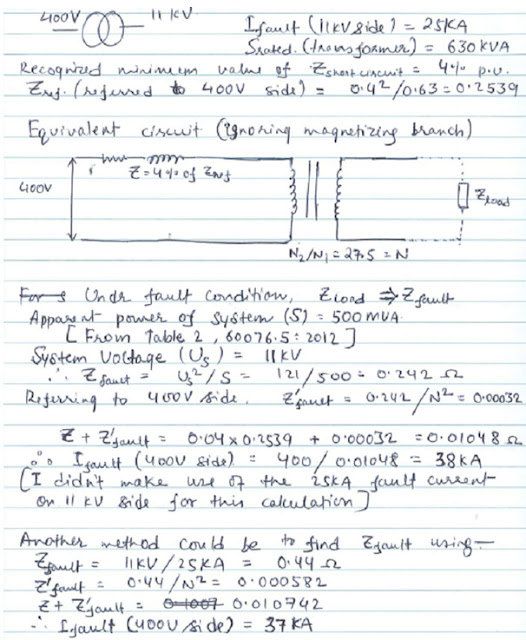 400V 11 KV
Ifault (11KV side) = 25KA
Srated. (transformer) = 630 KVA
Recognized minimum value of Zshort circuit = 4% p.u.
Zref. (referred to 400V side) = 0.4²/0.63 = 0.2539
Equivalent circuit (Ignoring magnetizing branch)
r
Z = 4% of Zref
400V
Zload
N2/N1 = 27.5 = N
For s Undr fault condition, Zload ⇒ Zfault
Apparent power of system (S) = 500 MVA
[From Table 2, 60076.5 : 2012]
System Voltage (Us) = 11KV
∴ Zfault = Us²/S = 121/500 = 0.242 Ω
Referring to 400V side. Z'fault = 0.242/N² = 0.00032
Z + Z'fault = 0.04 x 0.2539 + 0.00032 = 0.01048 Ω
∴ Ifault (400V side) = 400/0.01048 = 38KA
[I didn't make use of the 25KA fault current
on 11 KV side for this calculation]
Another method could be to find Zfault using:-
Zfault = 11KV/25KA = 0.44 Ω
Z'fault = 0.44/N² = 0.000582
Z + Z'fault = 0.010742
∴ Ifault (400V side) = 37KA